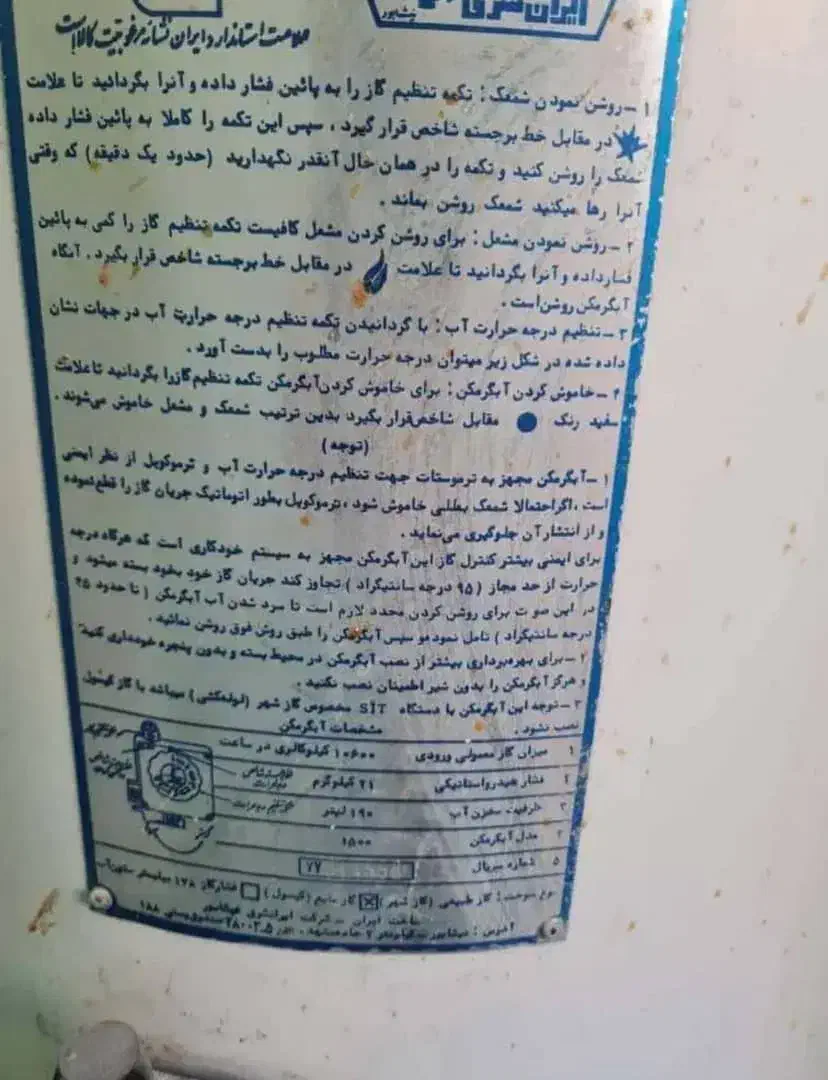 ایران شرق
نیشابور
علامت استاندارد ایران نشانه مرغوبیت کالا است
۱ – روشن نمودن شمعک : تکمه تنظیم گاز را به پائین فشار داده و آنرا بگردانید تا علامت
در مقابل خط برجسته شاخص قرار گیرد ، سپس این تکمه را کاملا به پائین فشار داده
شمعک را روشن کنید و تکمه را در همان حال آنقدر نگهدارید (حدود یک دقیقه) که وقتی
آنرا رها میکنید شمعک روشن بماند .
۲ – روشن نمودن مشعل : برای روشن کردن مشعل کافیست تکمه تنظیم گاز را کمی به پائین
فشار داده و آنرا بگردانید تا علامت در مقابل خط برجسته شاخص قرار بگیرد . آنگاه
آبگرمکن روشن است .
۳ – تنظیم درجه حرارت آب : با گردانیدن تکمه تنظیم درجه حرارت آب در جهات نشان
داده شده در شکل زیر میتوان درجه حرارت مطلوب را بدست آورد .
۴ – خاموش کردن آبگرمکن : برای خاموش کردن آبگرمکن تکمه تنظیم گاز را بگردانید تا علامت
سفید رنگ مقابل شاخص قرار بگیرد بدین ترتیب شمعک و مشعل خاموش می‌شوند .
(توجه)
۱ – آبگرمکن مجهز به ترموستات جهت تنظیم درجه حرارت آب و ترموکوپل از نظر ایمنی
است ، اگر احتمالا شمعک بعللی خاموش شود ، ترموکوپل بطور اتوماتیک جریان گاز را قطع نموده
و از انتشار آن جلوگیری می‌نماید .
برای ایمنی بیشتر کنترل گاز این آبگرمکن مجهز به سیستم خودکاری است که هرگاه درجه
حرارت از حد مجاز ( ۹۵ درجه سانتیگراد ) تجاوز کند جریان گاز خود بخود بسته میشود و
در این صورت برای روشن کردن مجدد لازم است تا سرد شدن آب آبگرمکن ( تا حدود ۴۵
درجه سانتیگراد ) تامل نموده و سپس آبگرمکن را طبق روش فوق روشن نمائید .
۲ – برای بهره‌برداری بیشتر از نصب آبگرمکن در محیط بسته و بدون پنجره خودداری کنید
و هرگز آبگرمکن را بدون شیر اطمینان نصب نکنید .
۳ – توجه این آبگرمکن با دستگاه SIT مخصوص گاز شهر (لوله‌کشی) میباشد با گاز کپسول
نصب نشود .
مشخصات آبگرمکن
۱ میزان گاز معمولی ورودی ۱۰۶۰۰ کیلوکالری در ساعت
۲ فشار هیدرواستاتیکی ۲۱ کیلوگرم
۳ ظرفیت مخزن آب ۱۹۰ لیتر
۴ مدل آبگرمکن ۱۵۰۰
۵ شماره سریال ۷۷
نوع سوخت : گاز طبیعی (گاز شهر) گاز مایع (کپسول) فشار گاز ۱۷۸ میلیمتر ستون آب
ساخت ایران – شرکت ایرانشرق نیشابور
آدرس : نیشابور کیلومتر ۲ جاده مشهد . صندوق پستی ۱۸۸